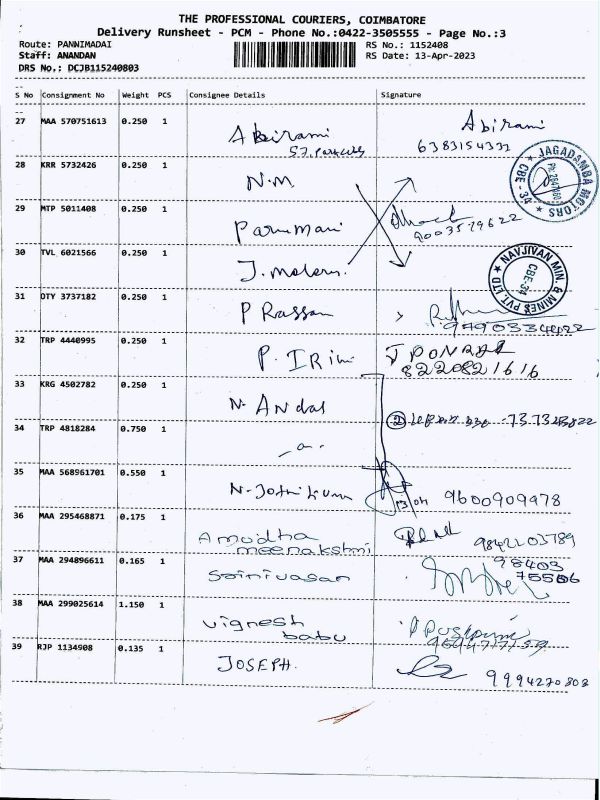 THE PROFESSIONAL COURIERS, COIMBATORE
Delivery Runsheet - PCM - Phone No.:0422-3505555 - Page No.:3
Route: PANNIMADAI RS No.: 1152408
Staff: ANANDAN RS Date: 13-Apr-2023
DRS No.: DCJB115240803
S No Consignment No Weight PCS Consignee Details Signature
27 MAA 570751613 0.250 1 Abirami Abirami
6383154332
28 KRR 5732426 0.250 1 N.M
JAGADAMBA MOTORS
CBE - 34
29 MTP 5011408 0.250 1
9003579622
30 TVL 6021566 0.250 1
NAVJIVAN MIN. & MINES PVT. LTD
CBE-34
31 OTY 3737182 0.250 1 P Rassam
32 TRP 4440995 0.250 1 J PONRAJ
8220821616
33 KRG 4502782 0.250 1 N. Andal
34 TRP 4818284 0.750 1
35 MAA 568961701 0.550 1 9600909978
36 MAA 295468871 0.175 1 Amudha
meenakshmi
37 MAA 294896611 0.165 1 Srinivasan 98403
75506
38 MAA 299025614 1.150 1 vignesh
babu
39 RJP 1134908 0.135 1 JOSEPH.
9994270808